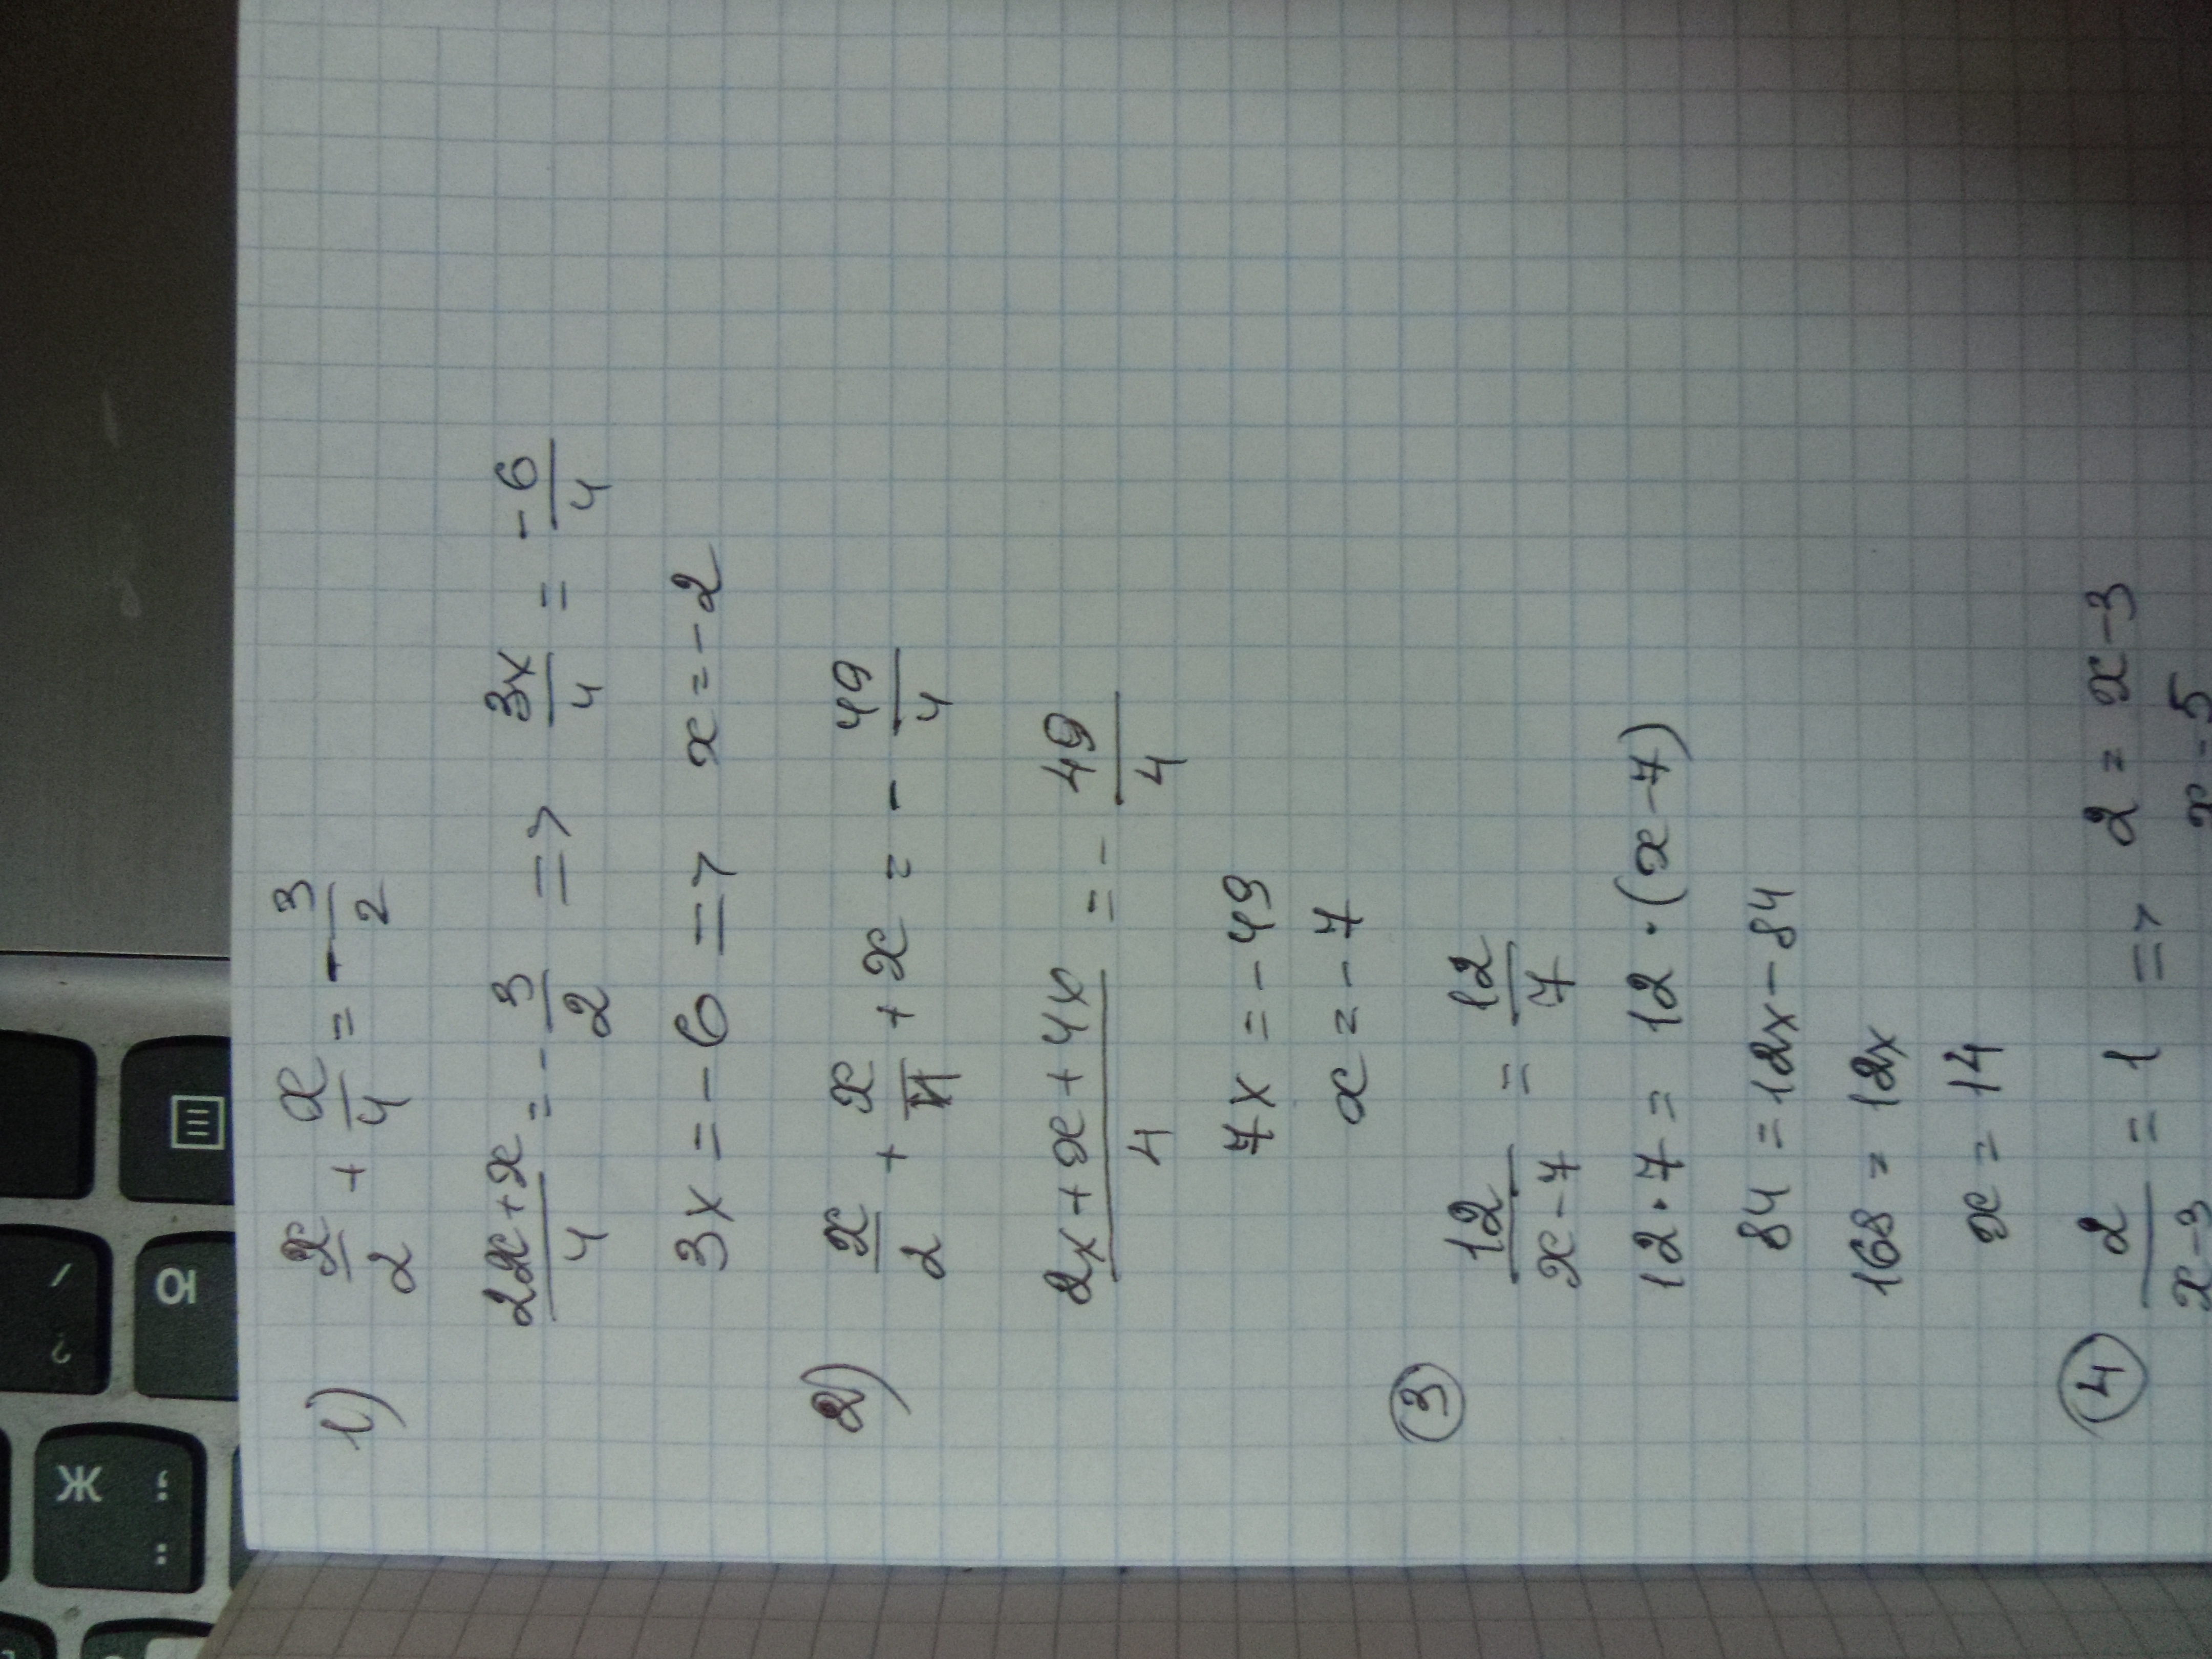 1) x/2 + x/4 = -3/2
2x+x/4 = -3/2 => 3x/4 = -6/4
3x = -6 => x = -2
2) x/2 + x/4 + x = -49/4
2x+x+4x/4 = -49/4
7x = -49
x = -7
3 12/x-7 = 12/7
12·7 = 12·(x-7)
84 = 12x-84
168 = 12x
x = 14
4 2/x-3 = 1 => 2 = x-3
x=5
Ж ; :
? /
Ю